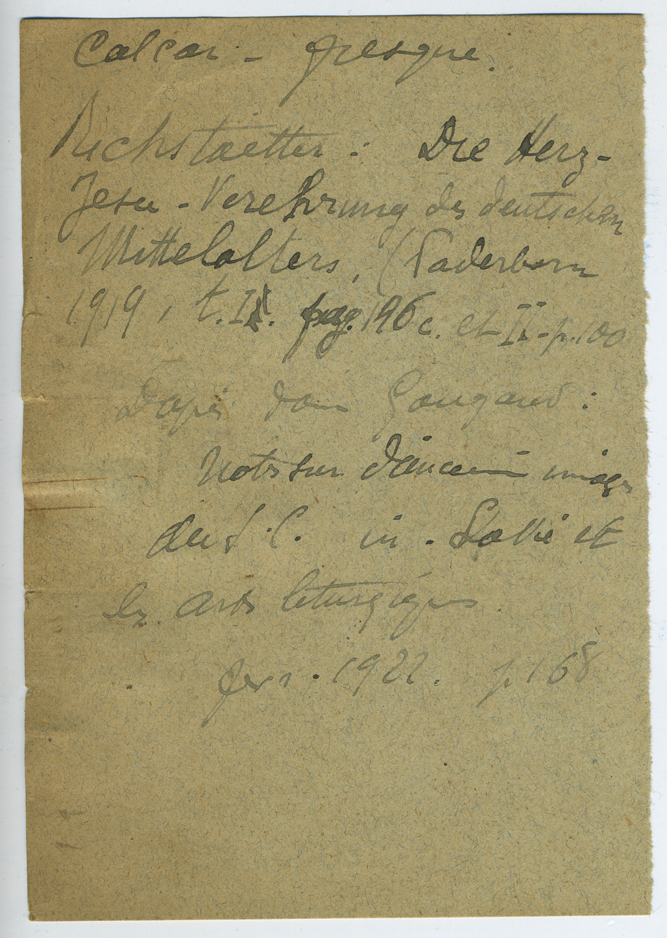 Calcar - fresque.
Richstaetter : Die Herz-
Jesu - Verehrung des deutschen
Mittelalters, (Paderborn
1919, t. I. pag. 196 c. et II - p. 100
D'après dom Gougaud :
Notes sur d'anciennes images
du S. C. in. La Vie et
les arts liturgiques.
fevr. 1922. p. 168